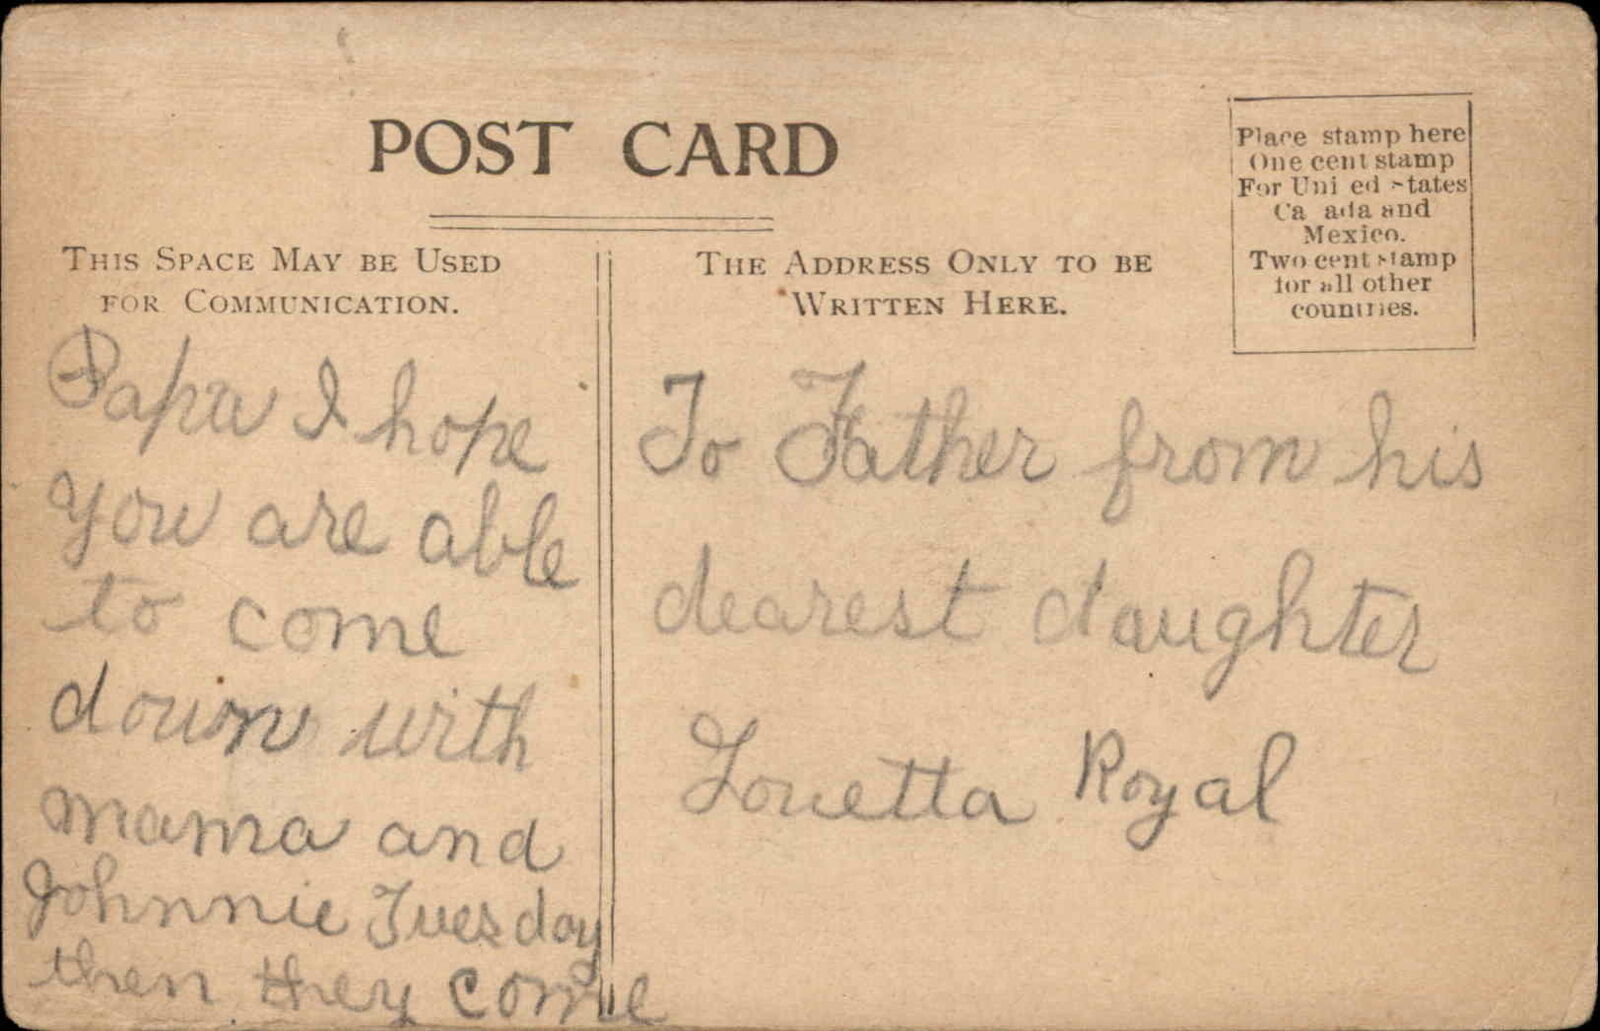 POST CARD
THIS SPACE MAY BE USED
FOR COMMUNICATION.
THE ADDRESS ONLY TO BE
WRITTEN HERE.
Place stamp here
One cent stamp
For Uni ed States
Ca ada and
Mexico.
Two cent stamp
for all other
countries.
Papa I hope
you are able
to come
down with
mama and
Johnnie Tuesday
then they come
To Father from his
dearest daughter
Louetta Royal